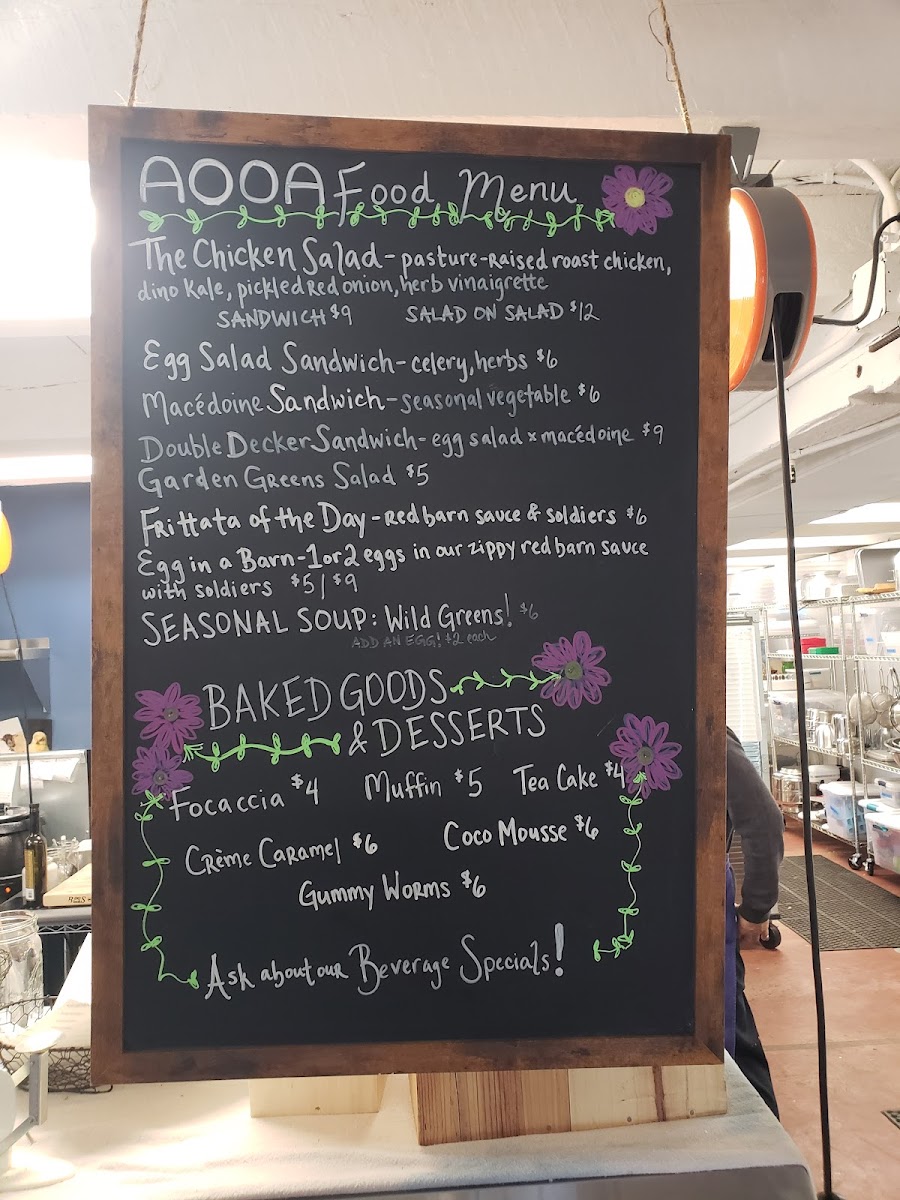 AOOA Food Menu
The Chicken Salad - pasture-raised roast chicken,
dino kale, pickled red onion, herb vinaigrette
SANDWICH $9 SALAD ON SALAD $12
Egg Salad Sandwich - celery, herbs $6
Macédoine Sandwich - seasonal vegetable $6
Double Decker Sandwich - egg salad x macédoine $9
Garden Greens Salad $5
Frittata of the Day - red barn sauce & soldiers $6
Egg in a Barn - 1 or 2 eggs in our zippy red barn sauce
with soldiers $5/$9
SEASONAL SOUP: Wild Greens! $6
ADD AN EGG! $2 each
BAKED GOODS
& DESSERTS
Focaccia $4 Muffin $5 Tea Cake $4
Crème Caramel $6 Coco Mousse $6
Gummy Worms $6
Ask about our Beverage Specials!